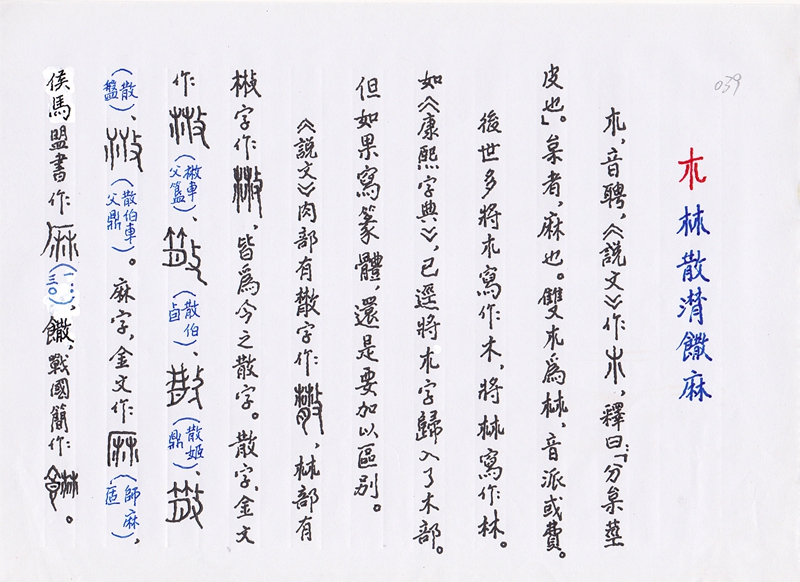 039
朩𣏟散潸饊麻
朩,音聘,《說文》作,釋曰:「分枲莖
皮也」。枲者,麻也。雙朩爲𣏟,音派或費。
後世多將朩寫作木,將𣏟寫作林。
如《康熙字典》,已逕將朩字歸入了木部。
但如果寫篆體,還是要加以區別。
《說文》肉部有字作,𣏟部有
㪔字作,皆爲今之散字。散字,金文
作(㪔車父簋)、(散伯卣)、(散姬鼎)、
(散盤)、(散伯車父鼎)。麻字,金文作(師麻𠤳),
侯馬盟書作(一:三〇),饊,戰國簡作。